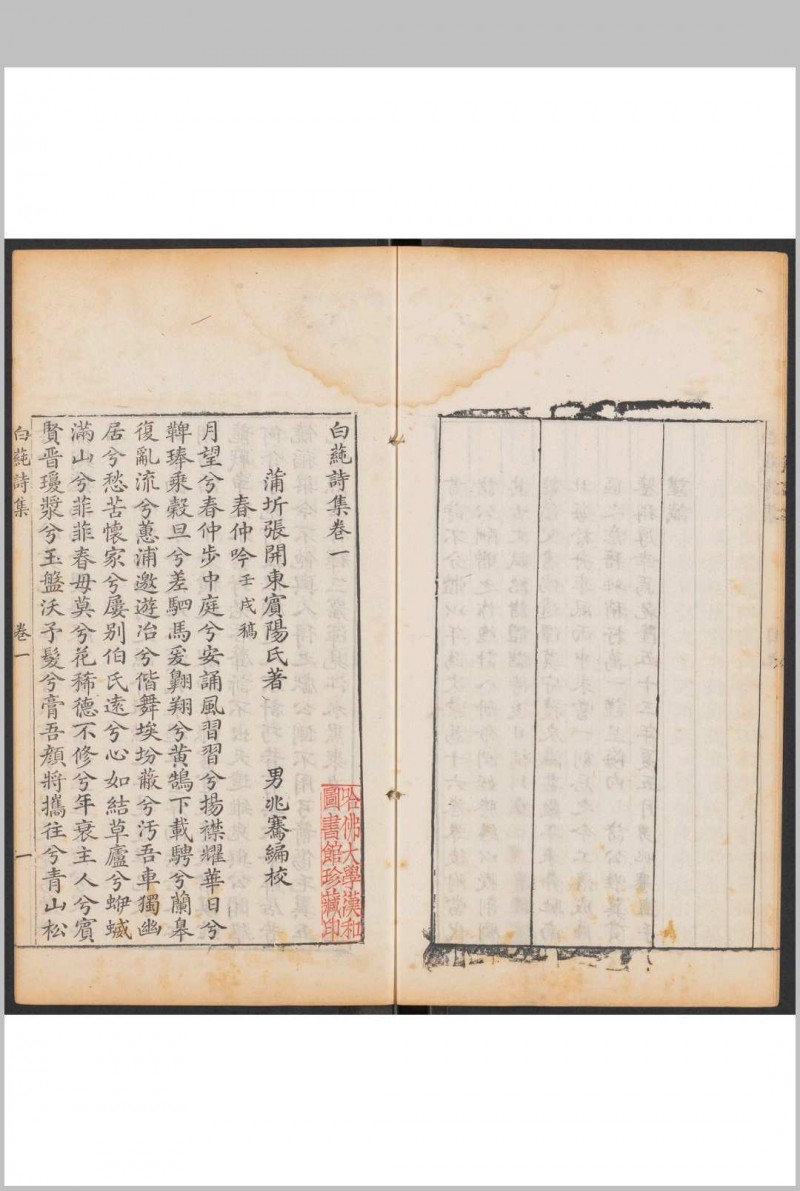 白蒓詩集卷一
蒲圻張開東賓陽氏著 男兆騫編校
春仲吟壬戌稿
月望兮春仲步中庭兮安誦風習習兮揚襟耀華日兮
鞞琫乘縠旦兮差駟馬爰翱翔兮黃鵠下載騁兮蘭皋
復亂流兮蕙浦邀遊冶兮偕舞埃坋蔽兮汚吾車獨幽
居兮愁苦懷家兮屢别伯氏遠兮心如結草廬兮蜵蠘
滿山兮菲菲春毋莫兮花稀德不修兮年衰主人兮賓
賢晋瓊漿兮玉盤沃予髮兮膏吾顔將攜往兮青山松
白蒓詩集
卷一
一
哈佛大學漢和
圖書館珍藏印